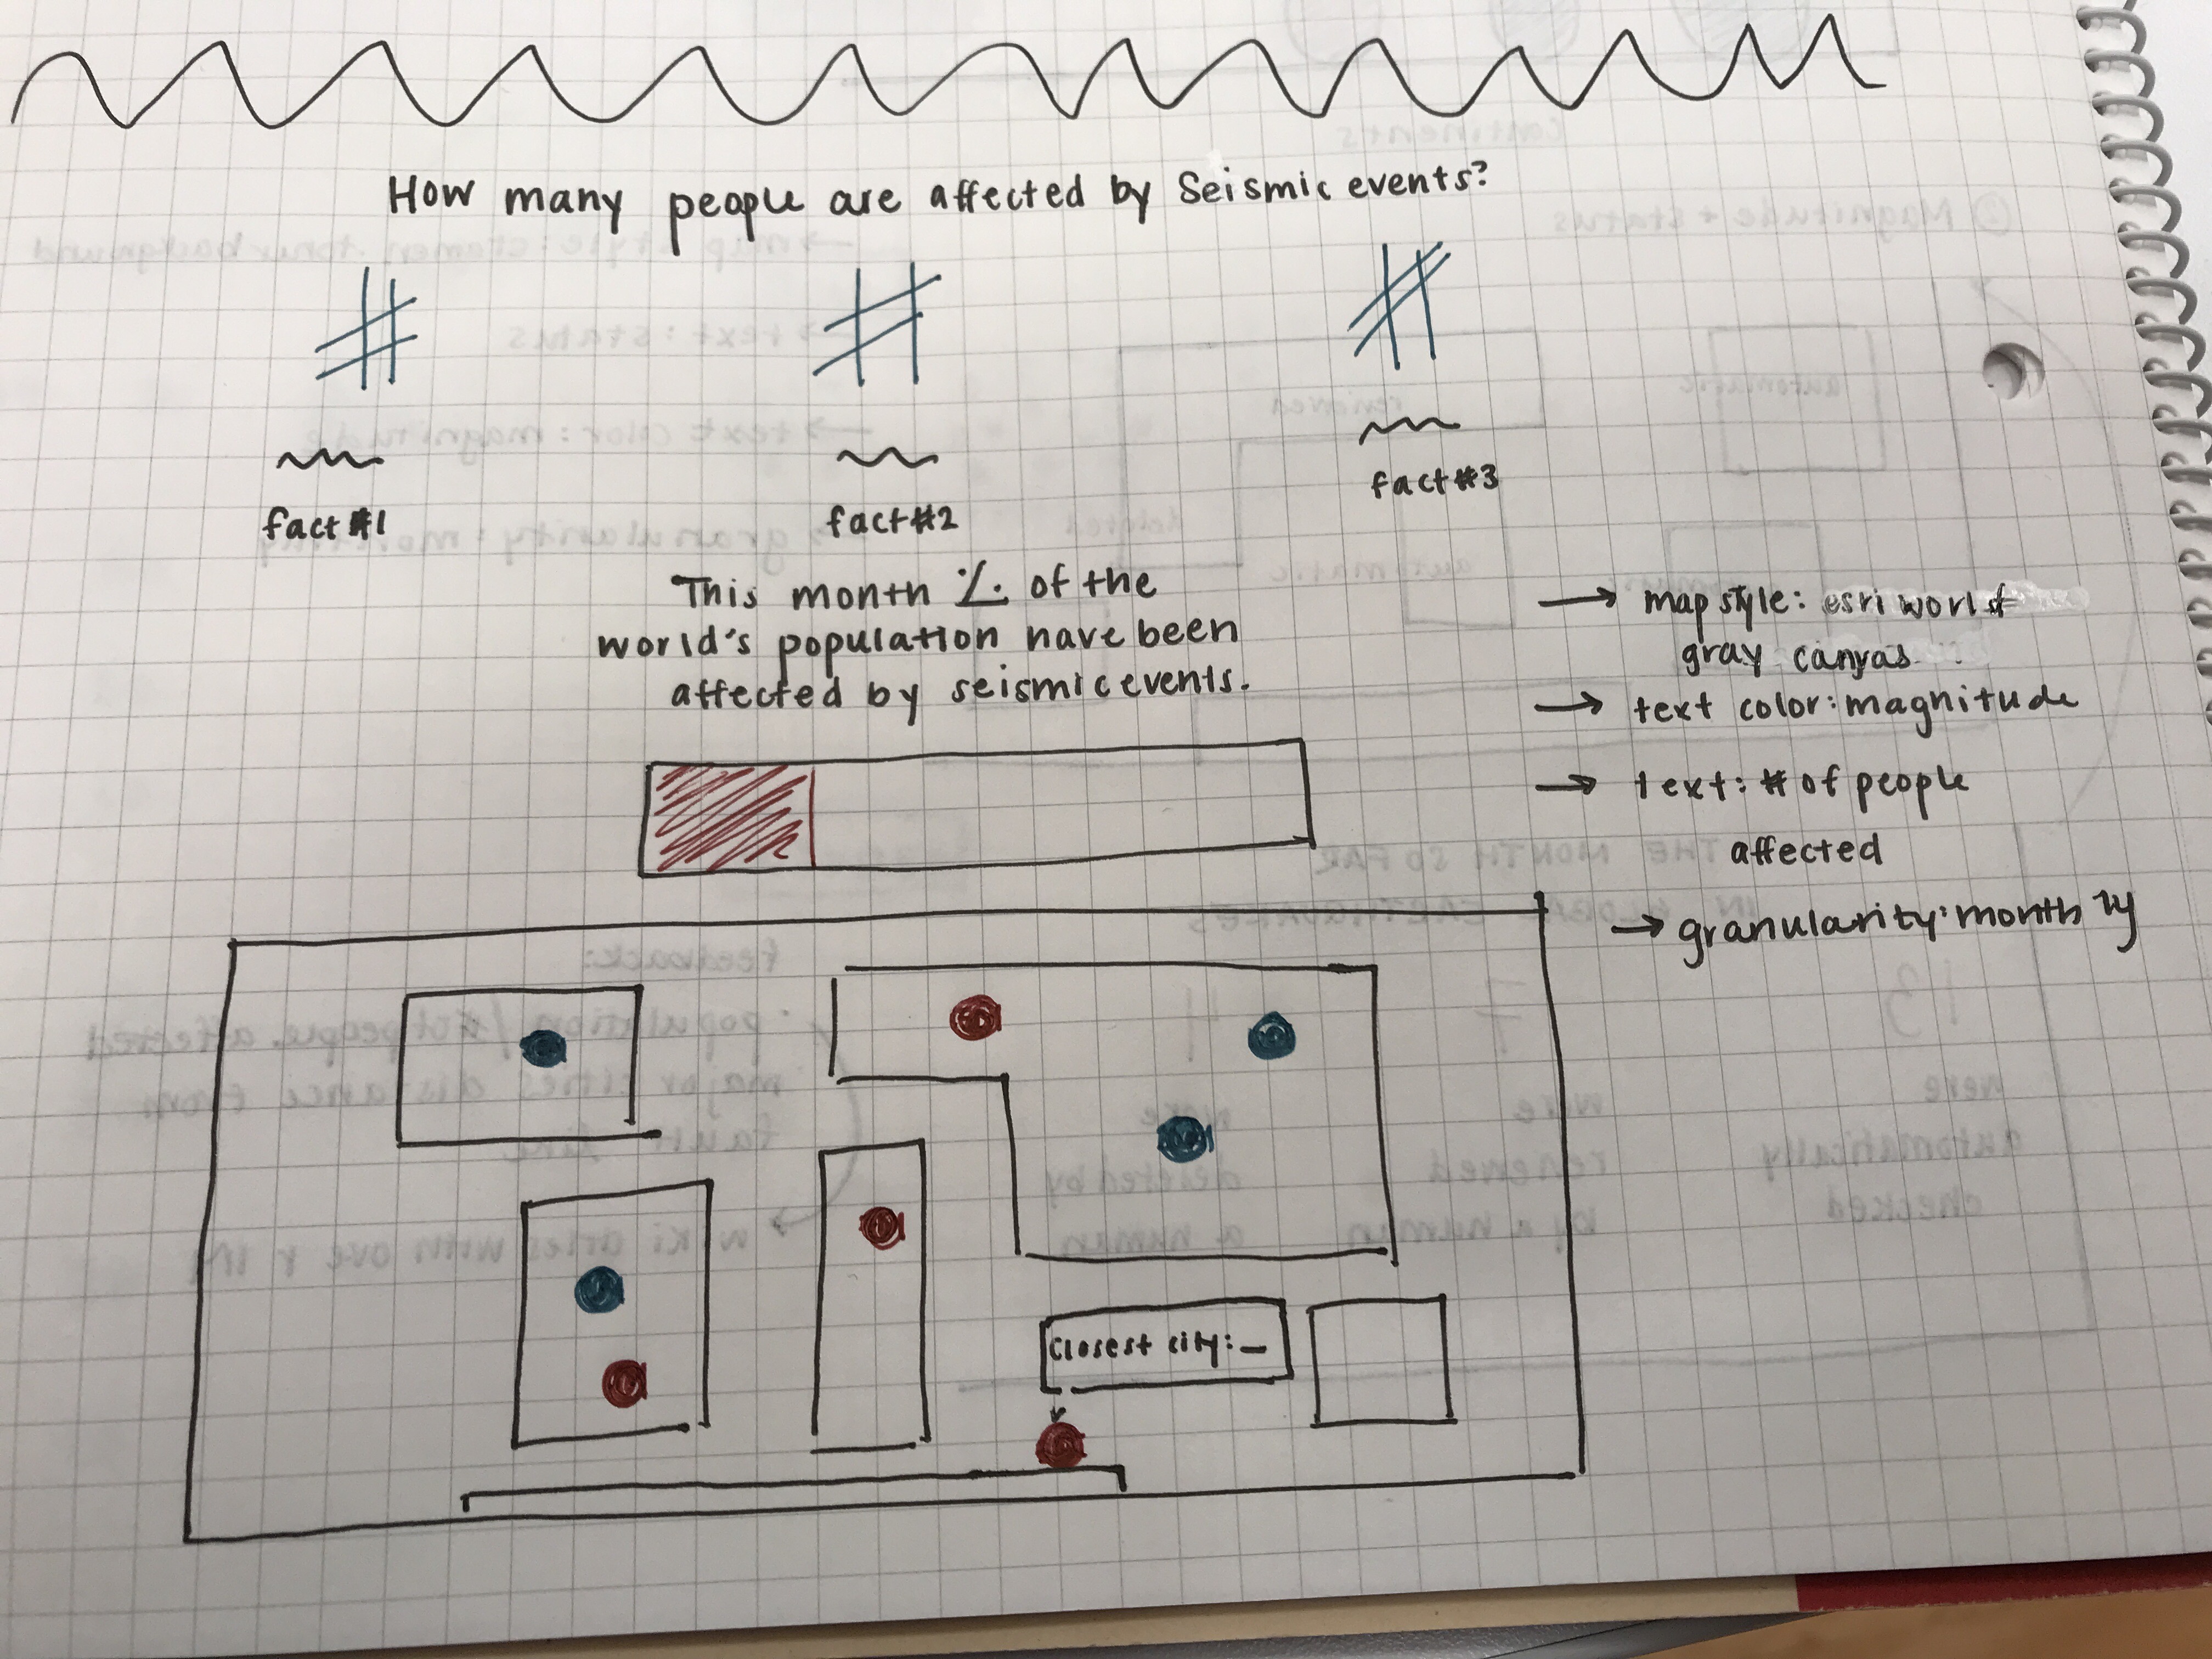 How many people are affected by Seismic events?
# # #
fact #1 fact #2 fact #3
This month % of the
world's population have been
affected by seismic events.
→ map style: esri world
gray canvas
→ text color: magnitude
→ text: # of people
affected
→ granularity: monthly
Closest city: _